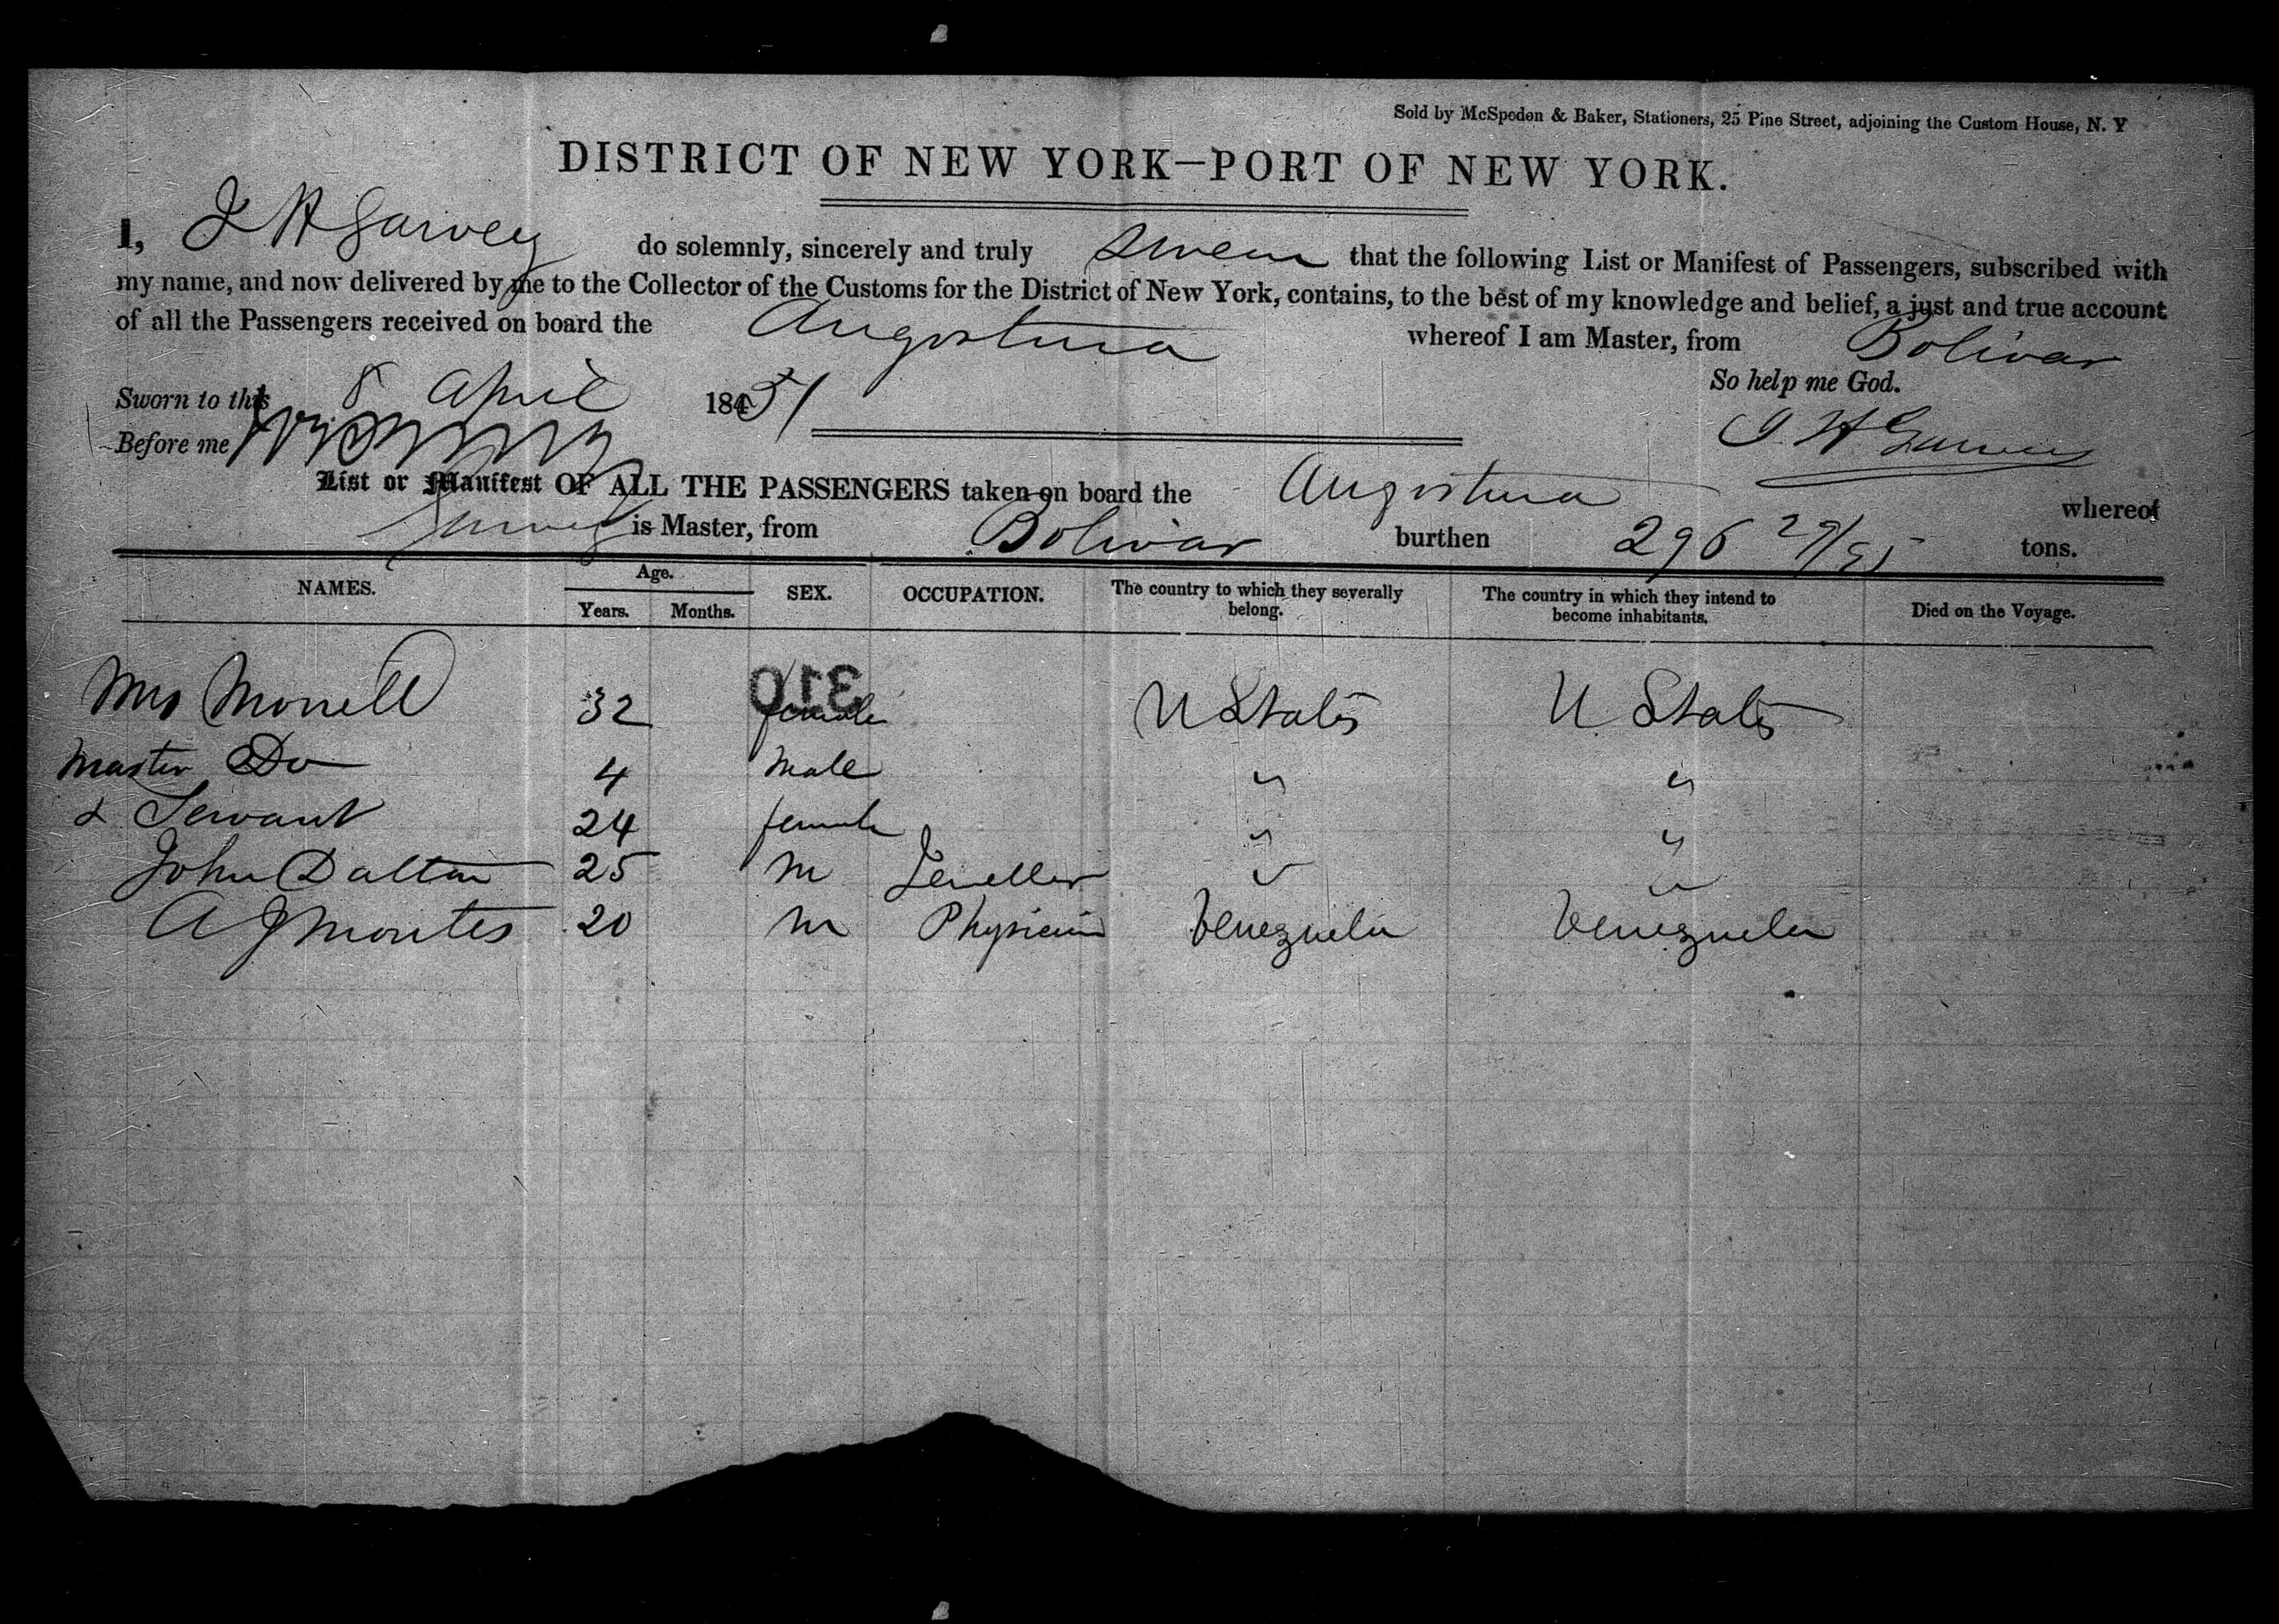 Sold by McSpedon & Baker, Stationers, 25 Pine Street, adjoining the Custom House, N. Y
DISTRICT OF NEW YORK—PORT OF NEW YORK.
I, J H Garvey do solemnly, sincerely and truly swear that the following List or Manifest of Passengers, subscribed with
my name, and now delivered by me to the Collector of the Customs for the District of New York, contains, to the best of my knowledge and belief, a just and true account
of all the Passengers received on board the Angostura whereof I am Master, from Bolivar
So help me God.
Sworn to this 8 April 1851
J. H Garvey
Before me
List or Manifest OF ALL THE PASSENGERS taken on board the Angostura whereof
Garvey is Master, from Bolivar burthen 296 29/95 tons.
NAMES. Age. Years. Months. SEX. OCCUPATION. The country to which they severally belong. The country in which they intend to become inhabitants. Died on the Voyage.
310
Mrs Monell 32 female U States U States
Master Do 4 Male " "
& Servant 24 female " "
John Dalton 25 m Jeweller " "
A J Montes 20 m Physician Venezuela Venezuela